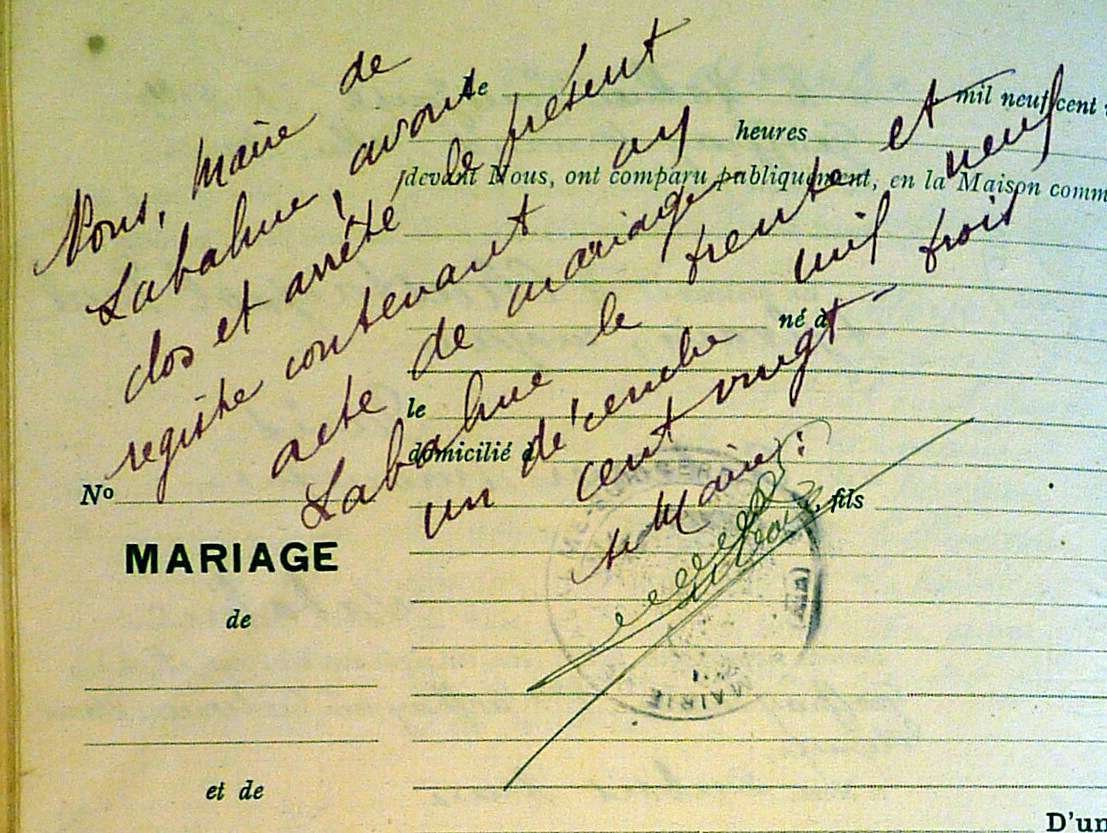 Nous, Maire de
Labalme, avons
clos et arrêté le présent
registre contenant
acte de mariage
Labalme le trente et
un décembre mil neuf
cent vingt-trois
Le Maire:
le mil neuf cent
heures
devant Nous, ont comparu publiquement, en la Maison comm
né à
le
domicilié à
fils
No
MARIAGE
de
et de
D'un
MAIRIE
(AIN)